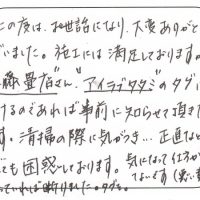 この度は、お世話になり、大変ありがと
ざいました。施工には満足しております。
畳店さん、"アイラブタタミ"のタグ
けるのであれば事前に知らせて頂き
す。清掃の際に気がつき…正直な
ても困惑しております。気になって仕方が
ないです
っていれば断りました。タグを。